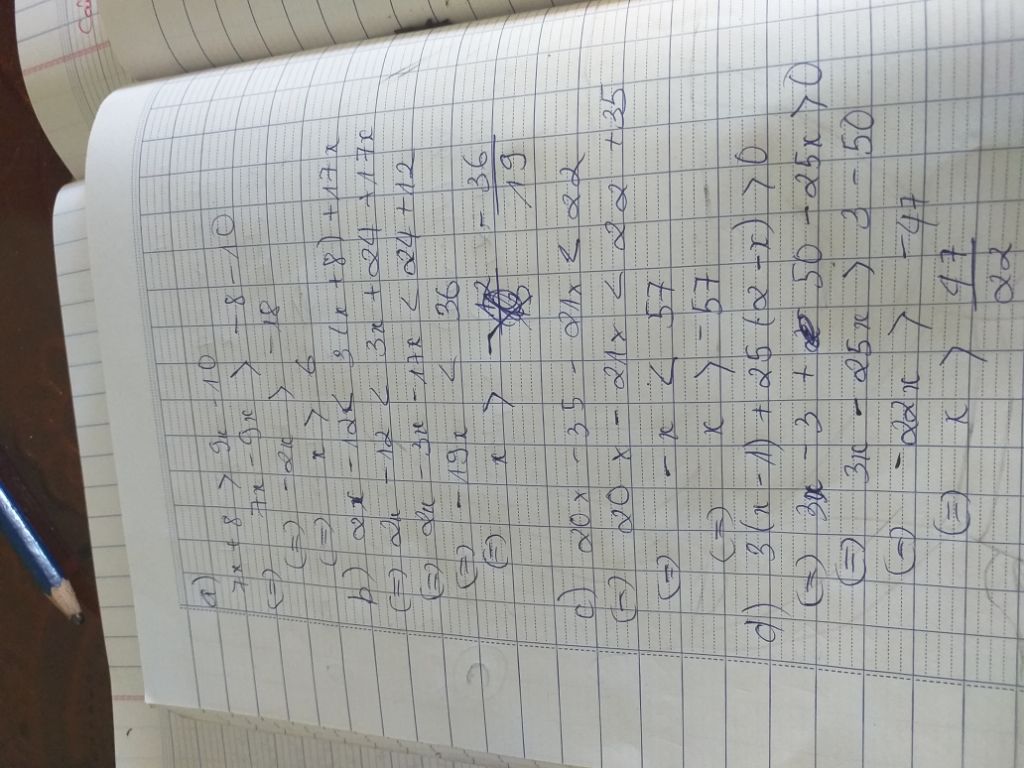 a)
7x + 8 > 9x - 10
(=) 7x - 9x > -8 - 10
(=) -2x > -18
(=) x > 6
b) 2x - 12 < 3(x + 8) + 17x
(=) 2x - 12 < 3x + 24 + 17x
(=) 2x - 3x - 17x < 24 + 12
(=) -19x < 36
(=) x > - 36/19
c) 20x - 35 - 21x < 22
(=) 20x - 21x < 22 + 35
(=) -x < 57
(=) x > -57
d) 3(x - 1) + 25(2 - x) > 0
(=) 3x - 3 + 50 - 25x > 0
(=) 3x - 25x > 3 - 50
(=) -22x > -47
(=) x > 47/22